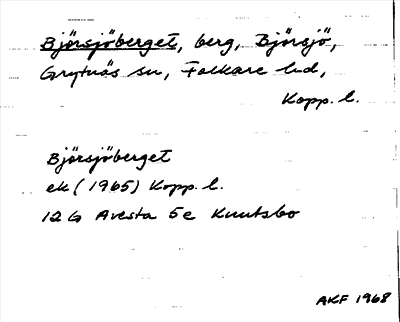 Björsjöberget, berg, Björsjö,
Grytnäs sn, Folkare hd,
Kopp. l.
Björsjöberget
ek (1965) Kopp. l.
12G Avesta 5e Knutsbo
AKF 1968